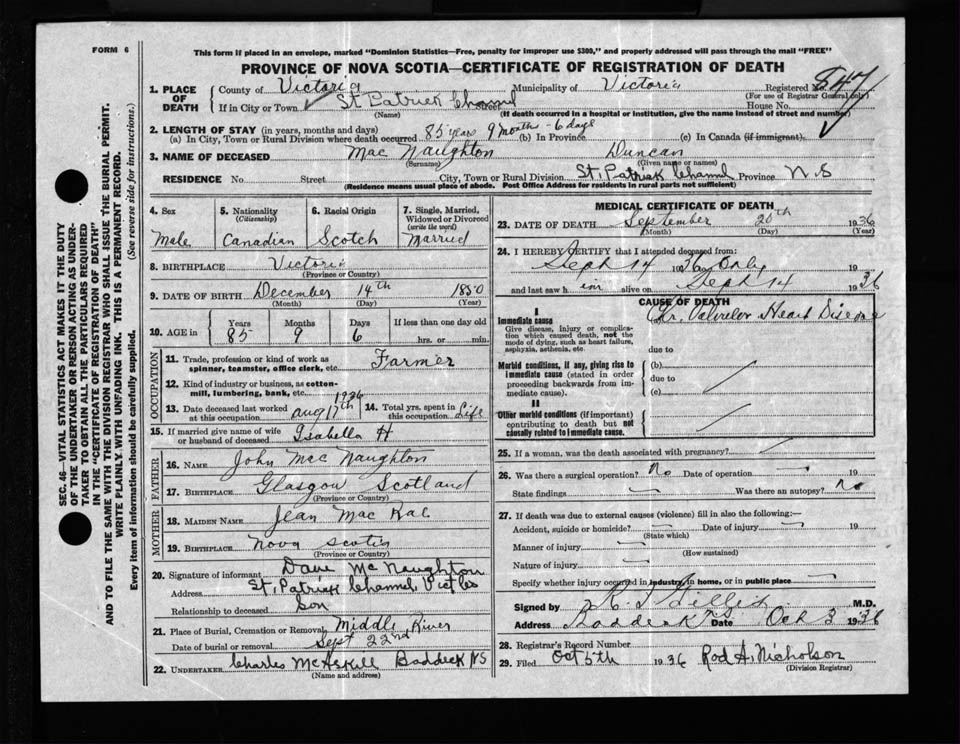 FORM 6
This form if placed in an envelope, marked "Dominion Statistics—Free, penalty for improper use $300," and properly addressed will pass through the mail "FREE"
PROVINCE OF NOVA SCOTIA—CERTIFICATE OF REGISTRATION OF DEATH
1. PLACE OF DEATH County of Victoria Municipality of Victoria Registered No. 847
(For use of Registrar General only)
If in City or Town St Patrick Channel Street House No.
(Name) (If death occurred in a hospital or institution, give the name instead of street and number)
2. LENGTH OF STAY (in years, months and days)
(a) In City, Town or Rural Division where death occurred 85 years 9 months - 6 days (b) In Province (c) In Canada (if immigrant)
3. NAME OF DECEASED Mac Naughton Duncan
(Surname) (Given name or names)
RESIDENCE No. Street City, Town or Rural Division St. Patrick Channel Province N S
(Residence means usual place of abode. Post Office Address for residents in rural parts not sufficient)
4. Sex Male
5. Nationality (Citizenship) Canadian
6. Racial Origin Scotch
7. Single, Married, Widowed or Divorced (write the word) Married
8. BIRTHPLACE Victoria
(Province or Country)
9. DATE OF BIRTH December 14th 1850
(Month) (Day) (Year)
10. AGE in Years Months Days If less than one day old
85 9 6 hrs. or min.
OCCUPATION
11. Trade, profession or kind of work as spinner, teamster, office clerk, etc. Farmer
12. Kind of industry or business, as cotton-mill, lumbering, bank, etc.
13. Date deceased last worked at this occupation Aug 17th 1936
14. Total yrs. spent in this occupation Life
15. If married give name of wife or husband of deceased Isabella H
FATHER
16. NAME John Mac Naughton
17. BIRTHPLACE Glasgow Scotland
(Province or Country)
MOTHER
18. MAIDEN NAME Jean Mac Rae
19. BIRTHPLACE Nova Scotia
(Province or Country)
20. Signature of informant Dave Mc Naughton
Address St, Patrick Channel, Vict
Relationship to deceased Son
21. Place of Burial, Cremation or Removal Middle River
Date of burial or removal Sept 22nd
22. UNDERTAKER Charles McAskill Baddeck NS
(Name and address)
MEDICAL CERTIFICATE OF DEATH
23. DATE OF DEATH September 20th 1936
(Month) (Day) (Year)
24. I HEREBY CERTIFY that I attended deceased from:
Sept 14 1936 Only 19
and last saw h im alive on Sept 14 1936
CAUSE OF DEATH
I
Immediate cause
Give disease, injury or complication which caused death, not the mode of dying, such as heart failure, asphyxia, asthenia, etc.
Chr. Valvular Heart Disease
due to
Morbid conditions, if any, giving rise to immediate cause (stated in order proceeding backwards from immediate cause)
(b)
due to
(c)
II
Other morbid conditions (if important) contributing to death but not causally related to immediate cause.
25. If a woman, was the death associated with pregnancy?
26. Was there a surgical operation? No Date of operation 19
State findings Was there an autopsy? no
27. If death was due to external causes (violence) fill in also the following:—
Accident, suicide or homicide? Date of injury 19
(State which)
Manner of injury
(How sustained)
Nature of injury
Specify whether injury occurred in industry, in home, or in public place
Signed by Gillis M.D.
Address Baddeck NS Date Oct 3 1936
28. Registrar's Record Number
29. Filed Oct 5th 1936 Rod A. Nicholson
(Division Registrar)
SEC. 46—VITAL STATISTICS ACT MAKES IT THE DUTY
OF THE UNDERTAKER OR PERSON ACTING AS UNDER-
TAKER TO OBTAIN ALL THE PARTICULARS REQUIRED
IN THE "CERTIFICATE OF REGISTRATION OF DEATH"
AND TO FILE THE SAME WITH THE DIVISION REGISTRAR WHO SHALL ISSUE THE BURIAL PERMIT.
WRITE PLAINLY. WITH UNFADING INK. THIS IS A PERMANENT RECORD.
Every item of information should be carefully supplied. (See reverse side for instructions.)